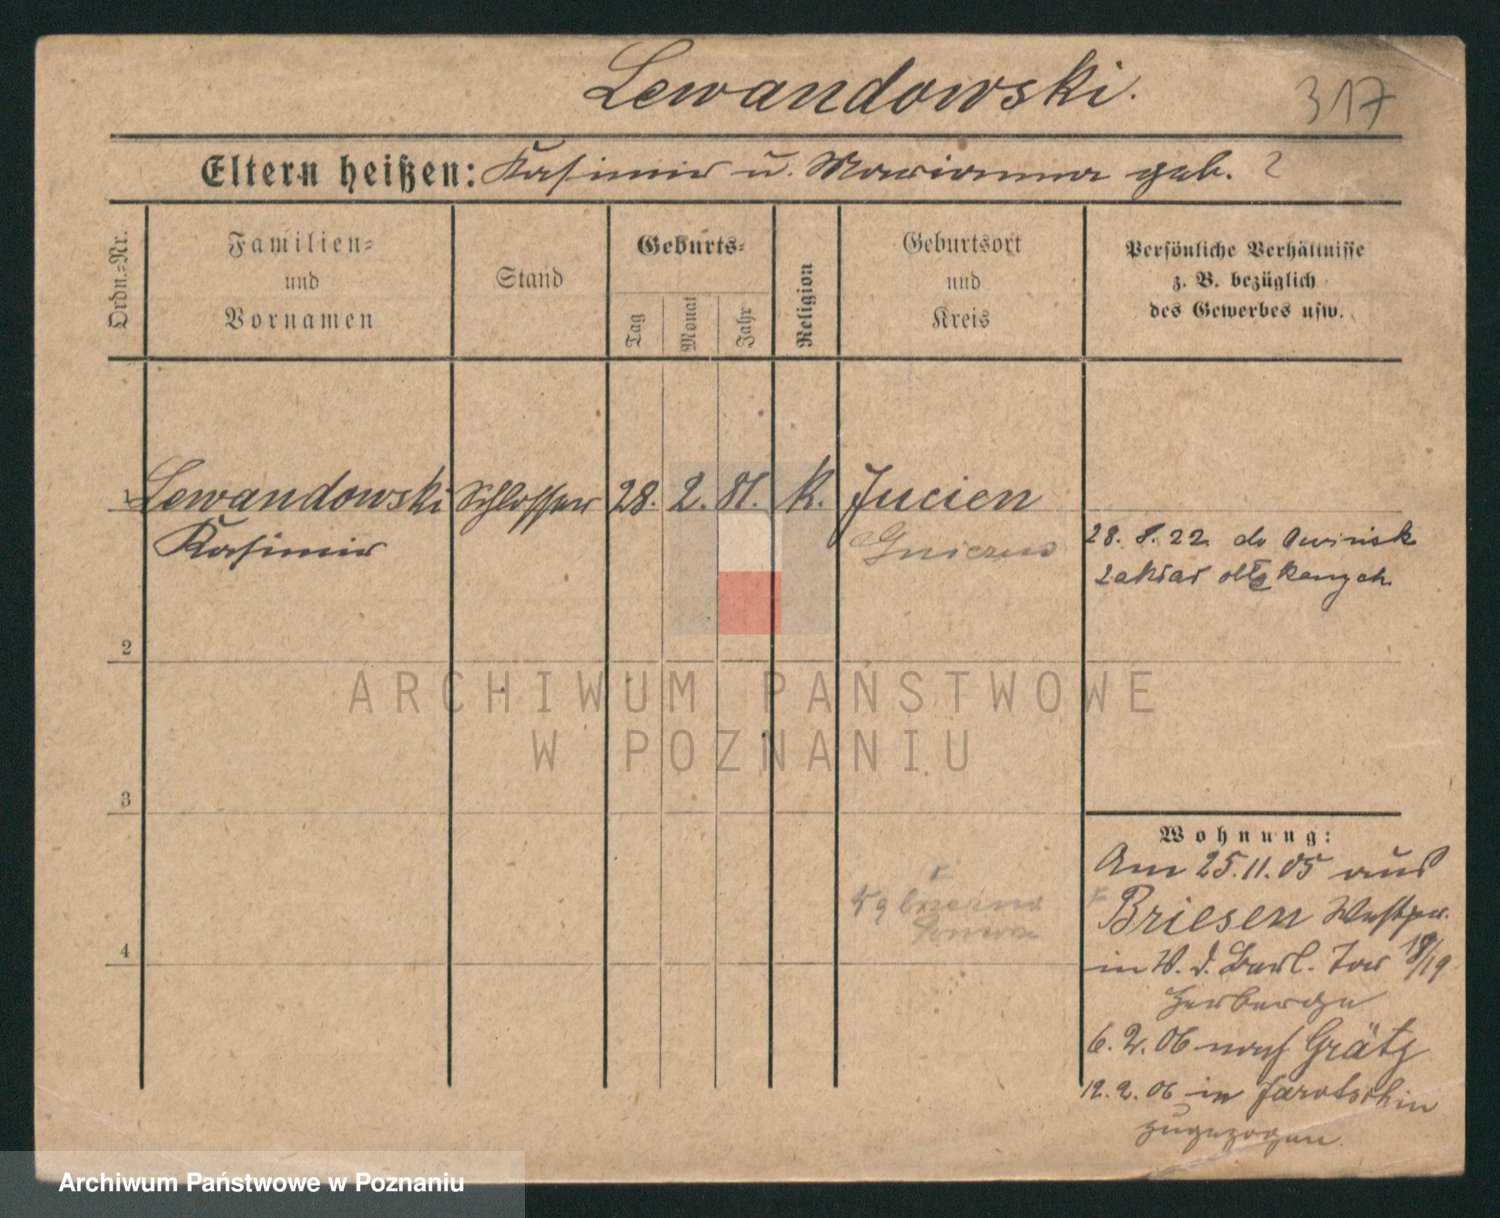 Lewandowski.
317
Eltern heißen: Kasimir u. Marianna geb. ?
Ordn.=Nr.
Familien=
und
Vornamen
Stand
Geburts=
Tag
Monat
Jahr
Religion
Geburtsort
und
Kreis
Persönliche Verhältnisse
z. B. bezüglich
des Gewerbes usw.
1 Lewandowski Schlosser 28. 2. 81. K. Jucien
Kasimir
28. 8. 22 do Owinsk
zakład obłąkanych
2
ARCHIWUM PAŃSTWOWE
W POZNANIU
3
Wohnung:
Am 25.11.05 aus
Briesen Westpr.
in W. d. Berl. Tor 18/19
Herberge
4
6. 2. 06 nach Grätz
12. 2. 06 in Jarotschin
zugezogen.
Archiwum Państwowe w Poznaniu